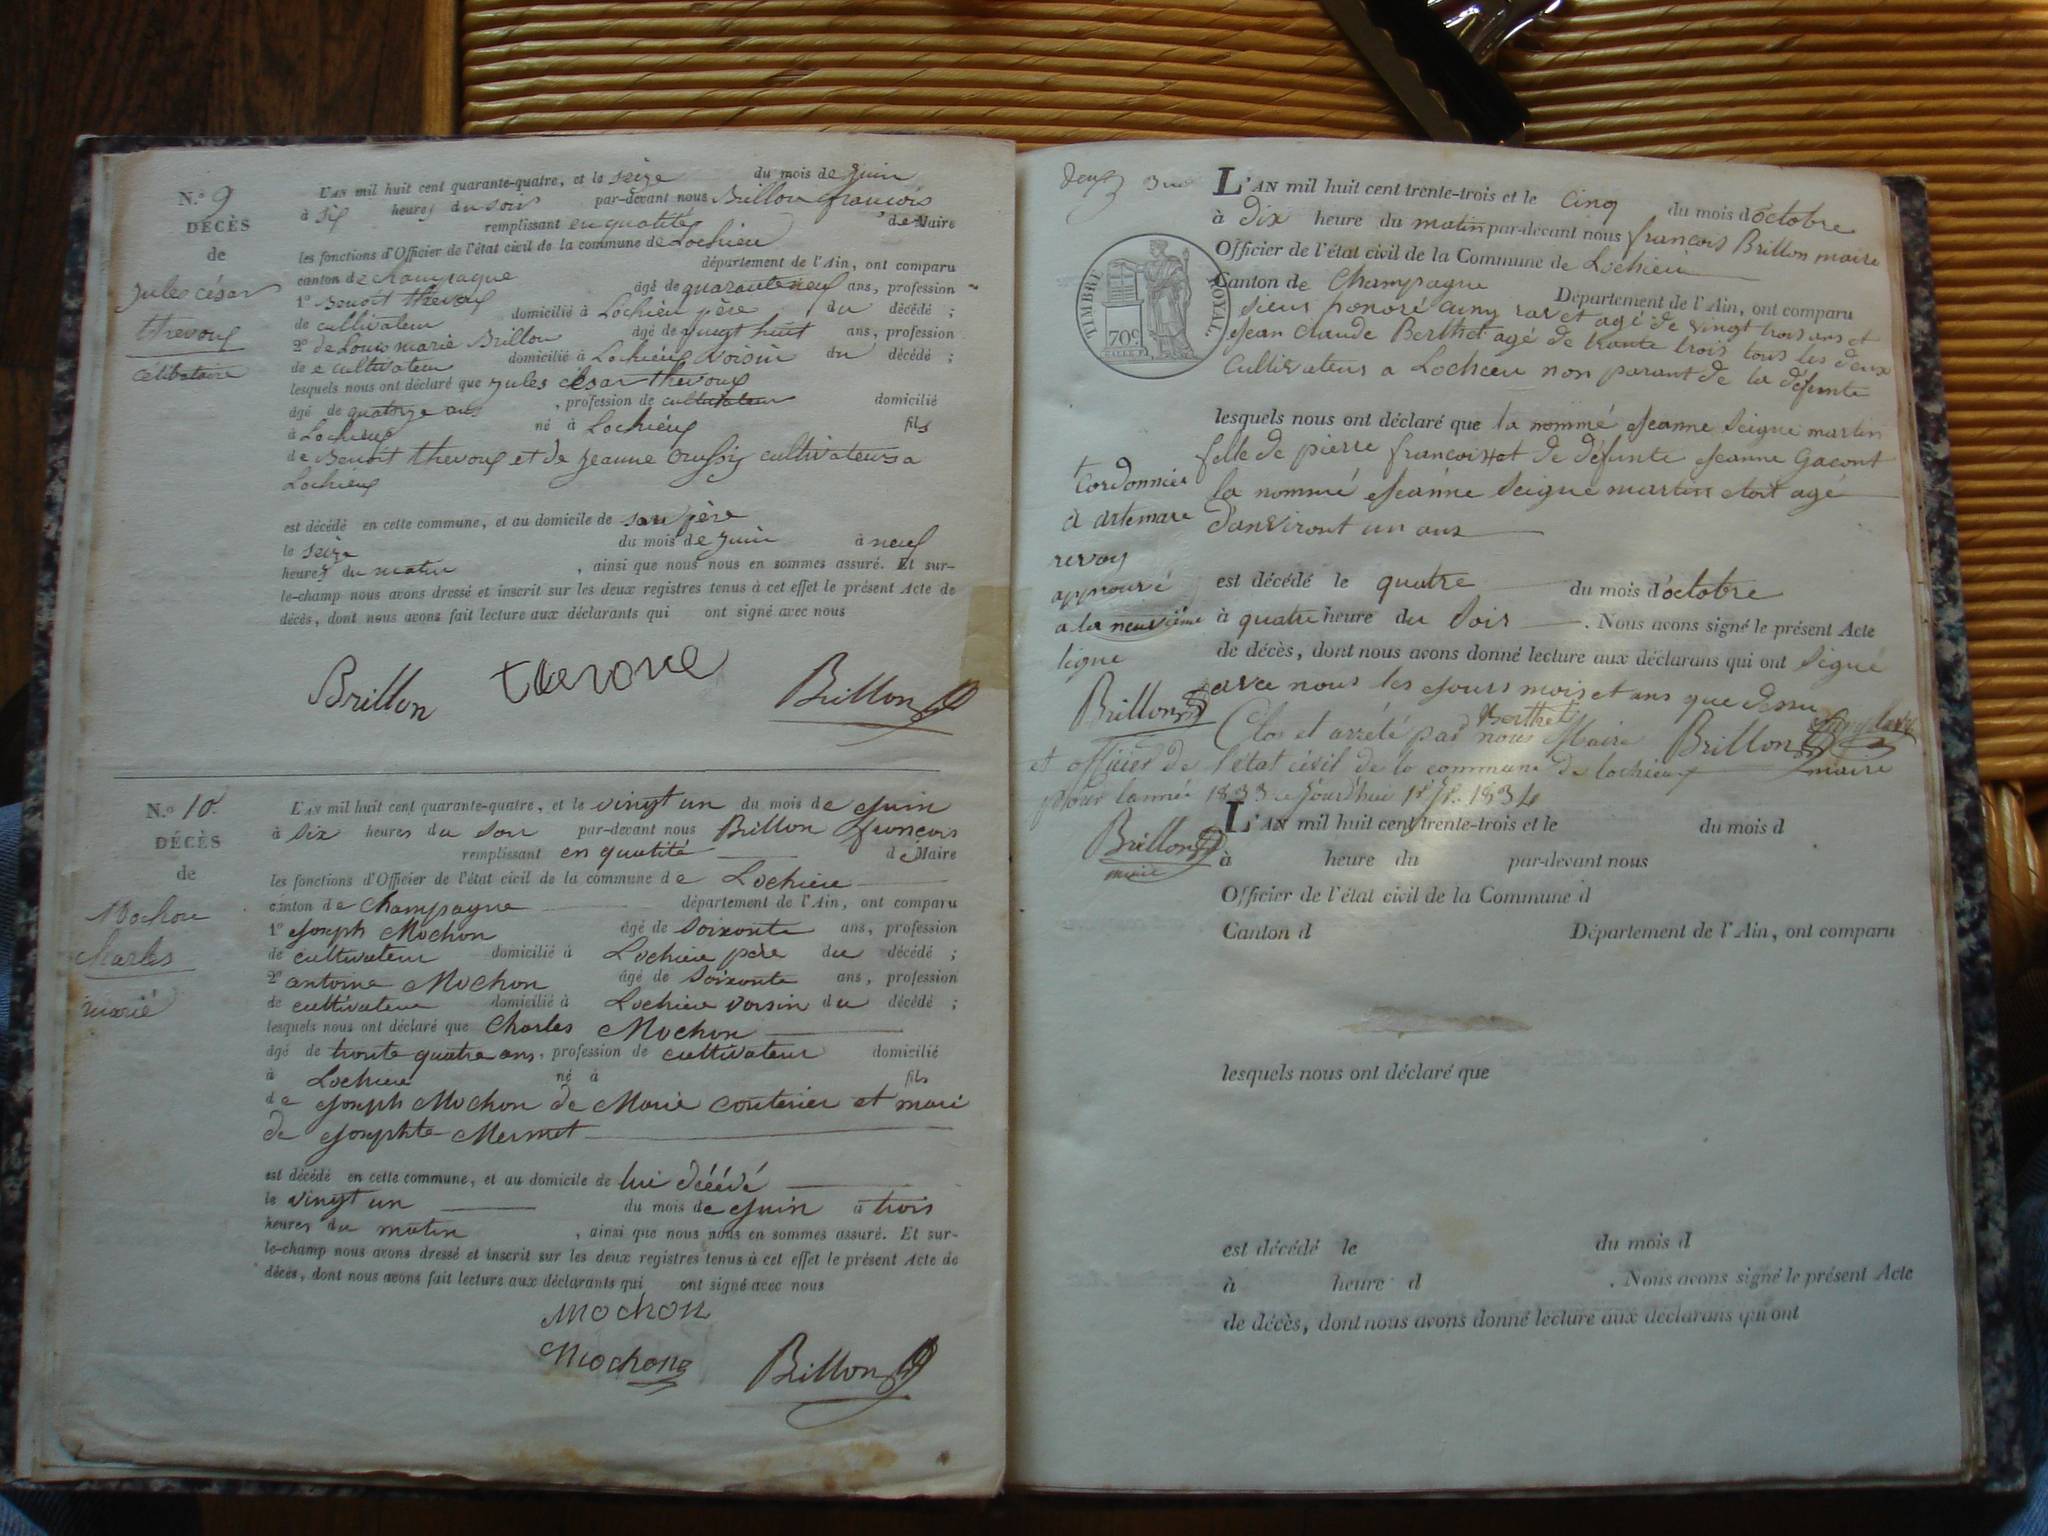 N.o 9
DÉCÈS
de
Jules césar
thevoux
célibataire
L'AN mil huit cent quarante-quatre, et le seize du mois de juin
à six heures du soir par-devant nous Brillon francois
remplissant en qualité de Maire
les fonctions d'Officier de l'état civil de la commune de Lochieu
canton de champagne département de l'Ain, ont comparu
1o Benoit thevoux âgé de quarante neuf ans, profession
de cultivateur domicilié à Lochieu père du décédé ;
2o de Louis marie Brillon âgé de vingt huit ans, profession
de e cultivateur domicilié à Lochieux voisin du décédé ;
lesquels nous ont déclaré que jules césar thevoux
âgé de quatorze ans , profession de cultivateur domicilié
à Lochieux né à Lochieux fils
de Benoit thevoux et de jeanne cultivateurs a
Lochieux
est décédé en cette commune, et au domicile de son père
le seize du mois de juin à neuf
heures du matin , ainsi que nous nous en sommes assuré. Et sur-
le-champ nous avons dressé et inscrit sur les deux registres tenus à cet effet le présent Acte de
décès, dont nous avons fait lecture aux déclarants qui ont signé avec nous
Brillon Brillon
N.o 10.
DÉCÈS
de
Mochon
charles
marié
L'AN mil huit cent quarante-quatre, et le vingt un du mois de juin
à six heures du soir par-devant nous Brillon francois
remplissant en qualité de Maire
les fonctions d'Officier de l'état civil de la commune de Lochieu
canton de champagne département de l'Ain, ont comparu
1o joseph Mochon âgé de soixante ans, profession
de cultivateur domicilié à Lochieu père du décédé ;
2o antoine Mochon âgé de soixante ans, profession
de cultivateur domicilié à Lochieu voisin du décédé ;
lesquels nous ont déclaré que charles Mochon
âgé de trente quatre ans, profession de cultivateur domicilié
à Lochieu né à fils
de joseph Mochon de Marie et mari
de josephte Mermet
est décédé en cette commune, et au domicile de lui décédé
le vingt un du mois de juin à trois
heures du matin , ainsi que nous nous en sommes assuré. Et sur-
le-champ nous avons dressé et inscrit sur les deux registres tenus à cet effet le présent Acte de
décès, dont nous avons fait lecture aux déclarants qui ont signé avec nous
Mochon
Mochon Brillon
TIMBRE ROYAL
70c.
L'AN mil huit cent trente-trois et le cinq du mois d'octobre
à dix heure du matin par-devant nous francois Brillon maire
Officier de l'état civil de la Commune de Lochieu
Canton de Champagne Département de l'Ain, ont comparu
sieur honoré ravet agé de vingt trois ans et
jean claude Berthet agé de trante trois tous les deux
cultivateurs a Lochieu non parant de la défunte
lesquels nous ont déclaré que la nommé jeanne Seigne martin
felle de pierre francois + et de défunte jeanne Gacont
la nommé jeanne Seigne martin etoit agé
d'anviront un ans
+
Cordonnier
à artemare
approuvé
a la neuvième
ligne
Brillon
est décédé le quatre du mois d'octobre
à quatre heure du Soir . Nous avons signé le présent Acte
de décès, dont nous avons donné lecture aux déclarans qui ont Signé
avec nous les jours mois et ans que dessu
Berthet
Clos et arrété par nous Maire Brillon
maire
et officier de l'état civil de la commune de lochieux
pour l'année 1833 1834
Brillon
maire
L'AN mil huit cent trente-trois et le du mois d
à heure du par-devant nous
Officier de l'état civil de la Commune d
Canton d Département de l'Ain, ont comparu
lesquels nous ont déclaré que
est décédé le du mois d
à heure d . Nous avons signé le présent Acte
de décès, dont nous avons donné lecture aux déclarans qui ont